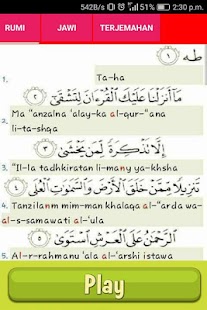 5428/s 53% 2:30 p.m.
RUMI JAWI TERJEMAHAN
طه ١
1. Ta-ha
مَآ أَنزَلْنَا عَلَيْكَ ٱلْقُرْءَانَ لِتَشْقَىٰٓ ٢
2. Ma "anzalna 'alay-ka al-qur-"ana
li-tashqa
إِلَّا تَذْكِرَةً لِّمَن يَخْشَىٰ ٣
3. "Il-la tadhkiratan li-many ya-khsha
تَنزِيلًا مِّمَّنْ خَلَقَ ٱلْأَرْضَ وَٱلسَّمَٰوَٰتِ ٱلْعُلَى ٤
4. Tanzilanm mim-man khalaqa al-"arda wa-
al-s-samawati al-'ula
ٱلرَّحْمَٰنُ عَلَى ٱلْعَرْشِ ٱسْتَوَىٰ ٥
al-r-rahmanu 'ala al-'arshi istawa
Play